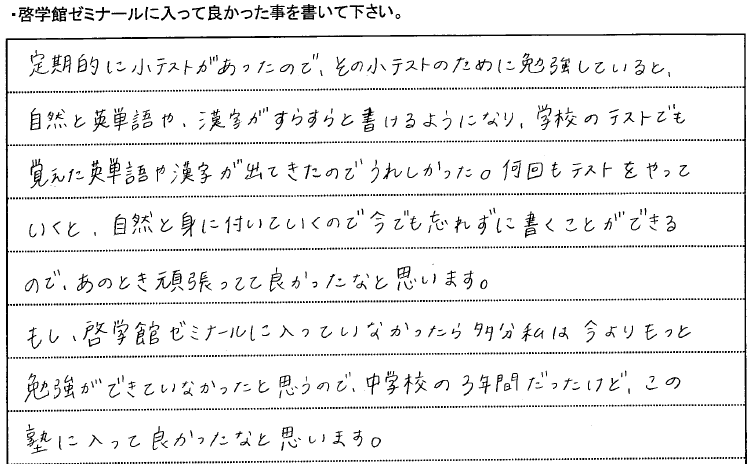 ・啓学館ゼミナールに入って良かった事を書いて下さい。
定期的に小テストがあったので、その小テストのために勉強していると、
自然と英単語や、漢字がすらすらと書けるようになり、学校のテストでも
覚えた英単語や漢字が出てきたのでうれしかった。何回もテストをやって
いくと、自然と身に付いていくので今でも忘れずに書くことができる
ので、あのとき頑張ってて良かったなと思います。
もし、啓学館ゼミナールに入っていなかったら多分私は今よりもっと
勉強ができていなかったと思うので、中学校の3年間だったけど、この
塾に入って良かったなと思います。